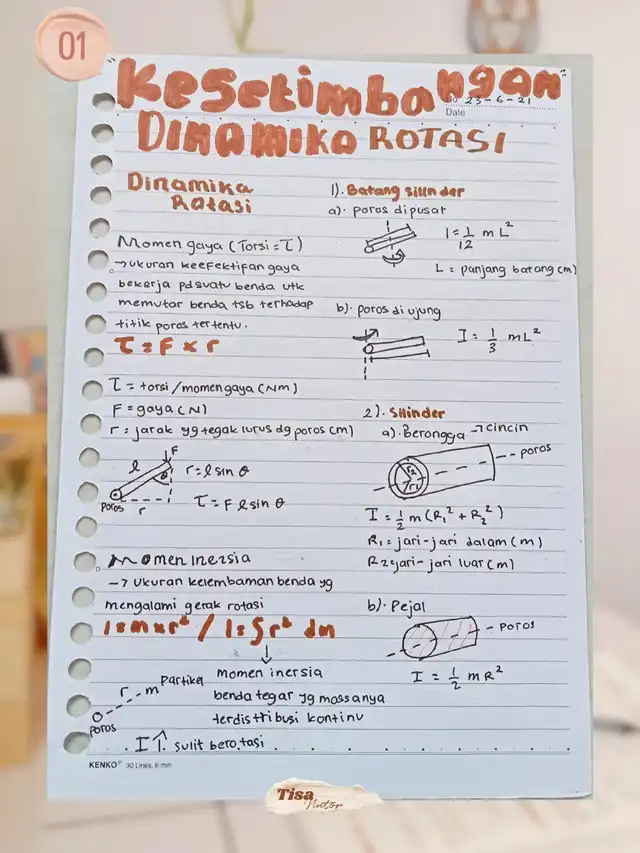 01
"Kesetimbangan"
23-6-21
Date
DINAMIKA ROTASI
Dinamika
Rotasi
Momen gaya (Torsi = τ)
→ ukuran keefektifan gaya
bekerja pd suatu benda utk
memutar benda tsb terhadap
titik poros tertentu.
τ = F × r
τ = torsi/momen gaya (Nm)
F = gaya (N)
r = jarak yg tegak lurus dg poros (m)
F
l
θ
r = l sin θ
τ = F l sin θ
Poros
r
Momen Inersia
→ ukuran kelembaman benda yg
mengalami gerak rotasi
I = m × r² / I = ∫ r² dm
momen inersia
benda tegar yg massanya
terdistribusi kontinu
r
m
Partikel
poros
I ↑ sulit berotasi
1). Batang silinder
a). poros dipusat
I = 1/12 m L²
L = panjang batang (m)
b). poros di ujung
I = 1/3 m L²
2). Silinder
a). Berongga → cincin
poros
r2
r1
I = 1/2 m (R₁² + R₂²)
R₁ = jari-jari dalam (m)
R2 = jari-jari luar (m)
b). Pejal
poros
I = 1/2 m R²
KENKO® 30 Lines, 6 mm
Tisa